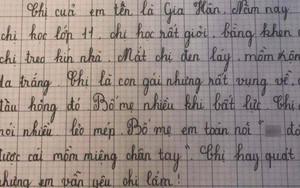 Chị cuả em tên là Gia Hân. Năm nay
chị học lớp 11, chị học rất giỏi, bằng khen
chị treo kín nhà. Mắt chị đen láy, mồm
da trắng. Chị là con gái nhưng rất vụng về.
đó Bố mẹ nhiều khi bất lực. Chị
nói nhiều, lẻo mép. Bố mẹ em toàn nói "
được cái mồm miệng chân tay". Chị hay quát
nhưng em vẫn yêu chị lắm!